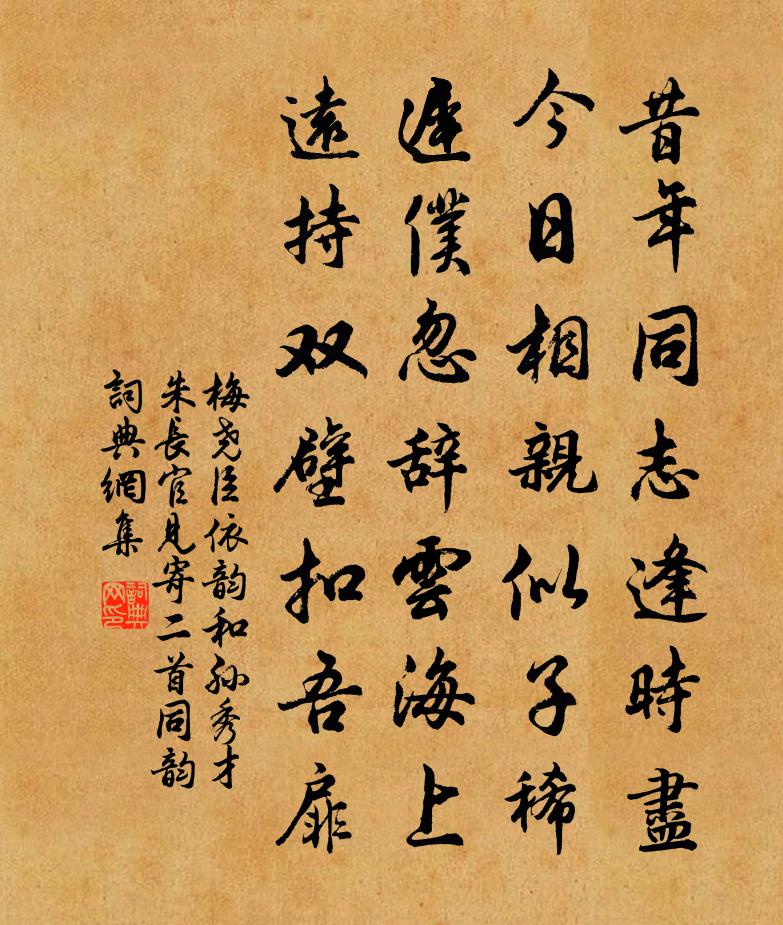 昔年同志逢時盡
今日相親似子稀
遲僕忽辞雲海上
遠持双璧扣吾扉
梅尧臣依韵和孫秀才
朱長官見寄二首同韵
詞典網集
詞典网印